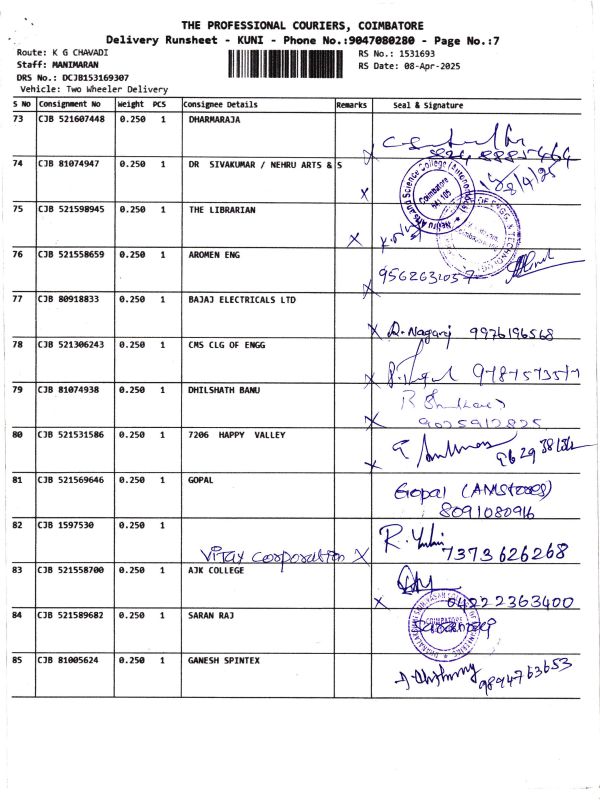 THE PROFESSIONAL COURIERS, COIMBATORE
Delivery Runsheet - KUNI - Phone No.:9047080280 - Page No.:7
Route: K G CHAVADI
RS No.: 1531693
Staff: MANIMARAN
RS Date: 08-Apr-2025
DRS No.: DCJB153169307
Vehicle: Two Wheeler Delivery
S No Consignment No Weight PCS Consignee Details Remarks Seal & Signature
73 CJB 521607448 0.250 1 DHARMARAJA
74 CJB 81074947 0.250 1 DR SIVAKUMAR / NEHRU ARTS & S
75 CJB 521598945 0.250 1 THE LIBRARIAN
76 CJB 521558659 0.250 1 AROMEN ENG
9562632057
77 CJB 80918833 0.250 1 BAJAJ ELECTRICALS LTD
X R. Nagaraj 9976196568
78 CJB 521306243 0.250 1 CMS CLG OF ENGG
79 CJB 81074938 0.250 1 DHILSHATH BANU
9025912825
80 CJB 521531586 0.250 1 7206 HAPPY VALLEY
81 CJB 521569646 0.250 1 GOPAL
Gopal
8091080916
82 CJB 1597530 0.250 1
Vijay Corporation X
7373626268
83 CJB 521558700 0.250 1 AJK COLLEGE
X 04222363400
84 CJB 521589682 0.250 1 SARAN RAJ
85 CJB 81005624 0.250 1 GANESH SPINTEX
9894763653